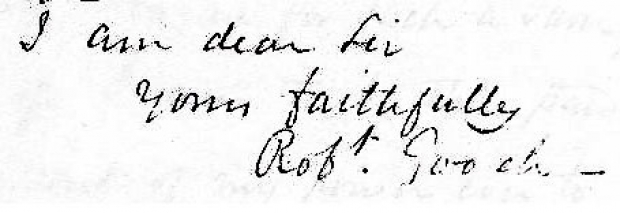 I am dear Sir
yours faithfully
Robt. Gooch –